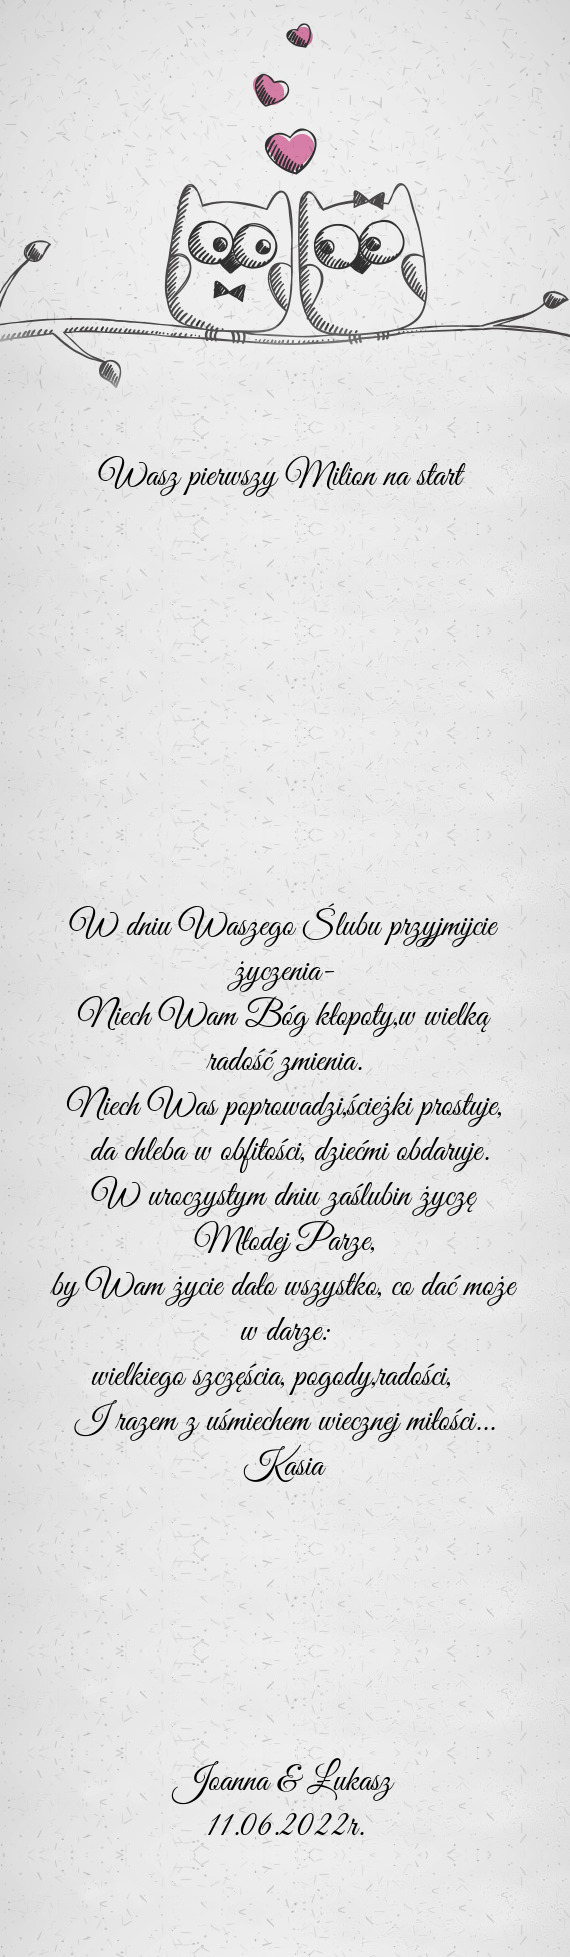 Wasz pierwszy Milion na start
W dniu Waszego Ślubu przyjmijcie
życzenia-
Niech Wam Bóg kłopoty,w wielką
radość zmienia.
Niech Was poprowadzi,ścieżki prostuje,
da chleba w obfitości, dziećmi obdaruje.
W uroczystym dniu zaślubin życzę
Młodej Parze,
by Wam życie dało wszystko, co dać może
w darze:
wielkiego szczęścia, pogody,radości,
I razem z uśmiechem wiecznej miłości...
Kasia
Joanna & Łukasz
11.06.2022r.